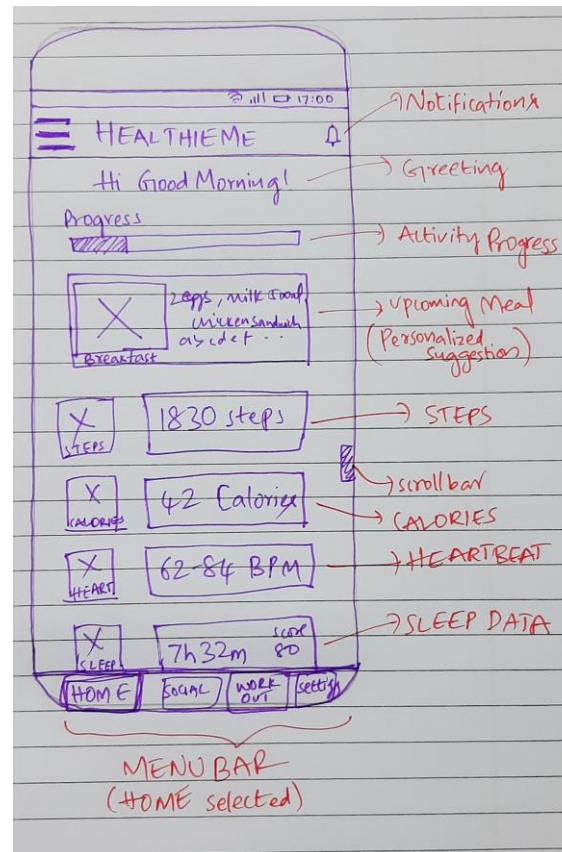 17:00
HEALTHIEME
Notifications
Hi Good Morning!
Greeting
Progress
Activity Progress
2 eggs, milk
chicken sandwich
abcdef ..
Breakfast
Upcoming Meal
(Personalized
Suggestion)
STEPS
1830 steps
STEPS
scrollbar
CALORIES
42 Calories
CALORIES
HEART
62-84 BPM
HEARTBEAT
SLEEP
7h 32m
score
80
SLEEP DATA
HOME
SOCIAL
WORK
OUT
MENU BAR
(HOME selected)